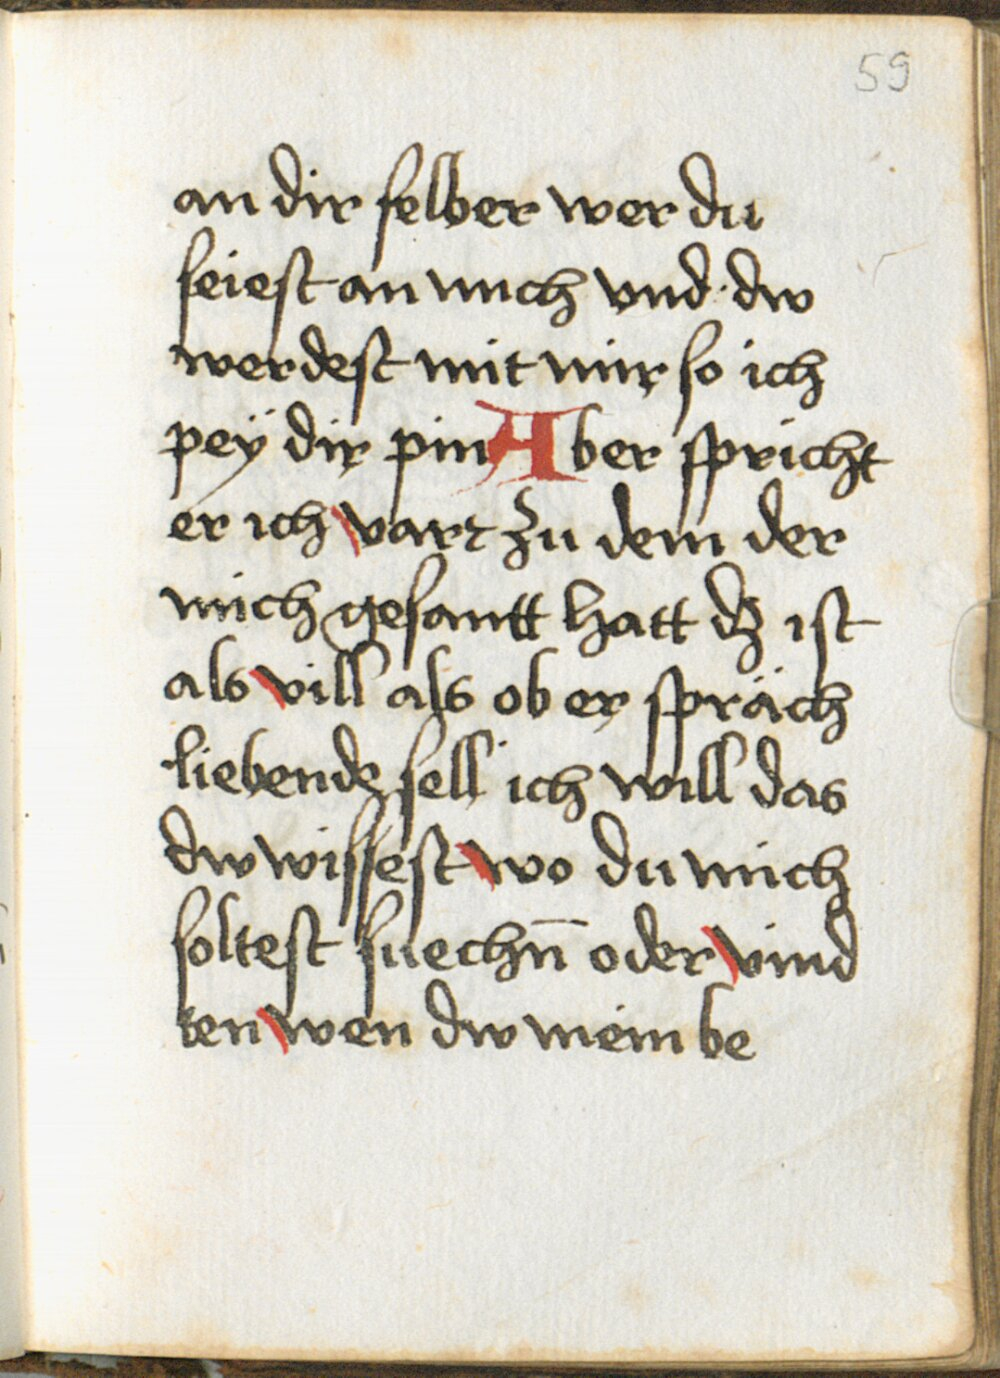 59
an dir selber wer du
seiest an mich vnd dw
werdest mit mir so ich
peÿ dir pin Aber spricht
er ich vart zu dem der
mich gesantt hatt dz ist
als vill als ob er spräch
liebende sell ich will das
dw wissest wo du mich
soltest suechn̄ oder vind
ten wen dw mein be